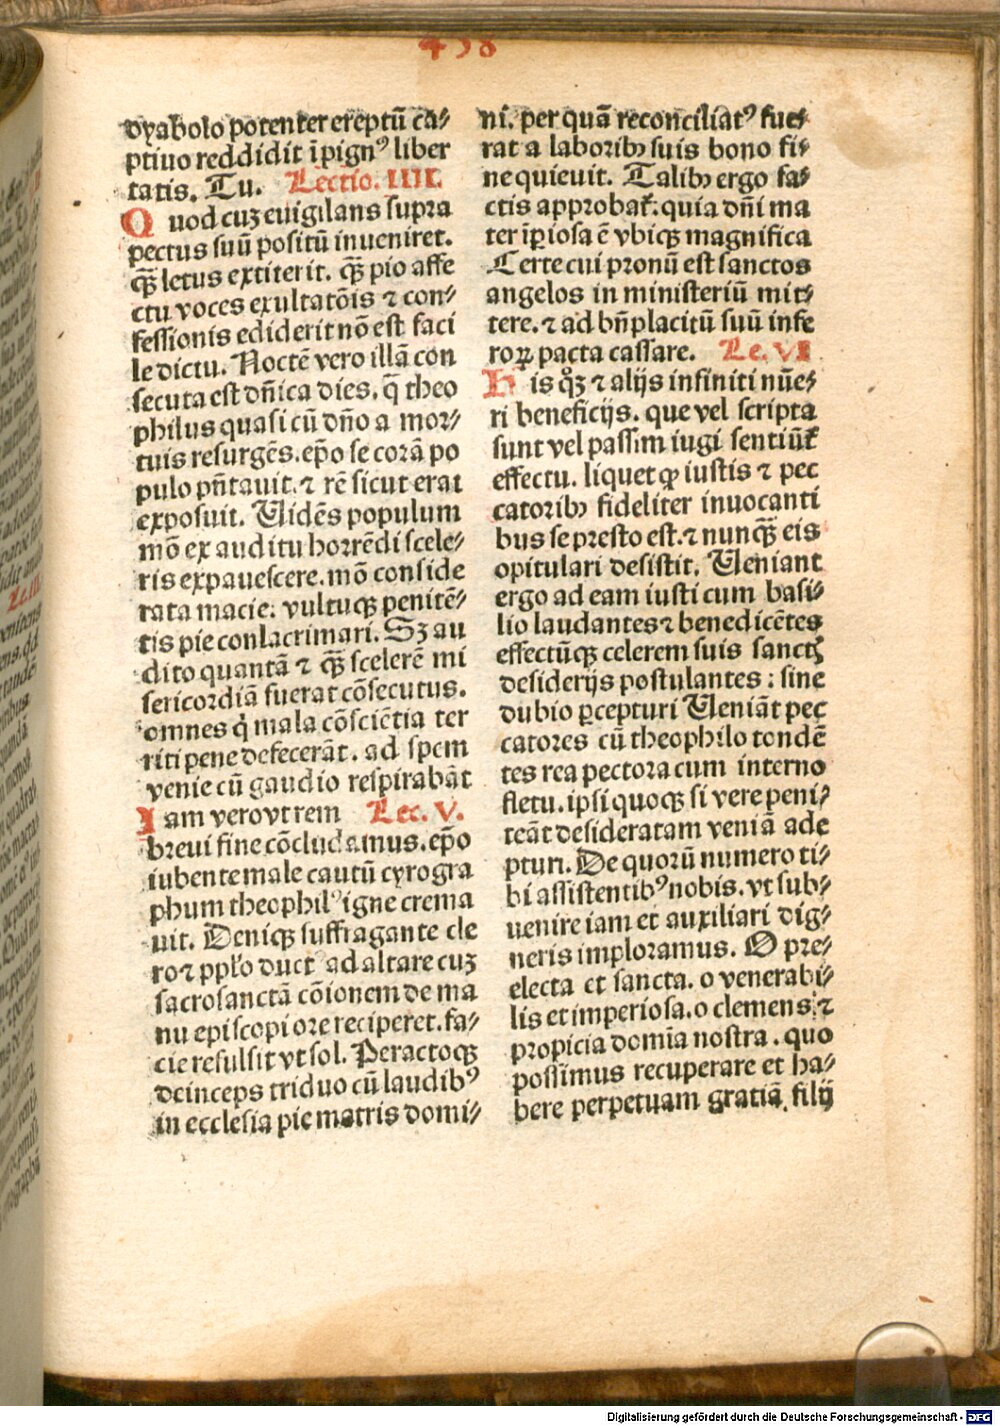 438
dyabolo potenter ereptū ca⸗
ptiuo reddidit īpignꝰ liber
tatis. Tu. Lectio. IIII.
Quod cuꝫ euigilans supra
pectus suū positū inueniret.
qͣꝫ letus extiterit. qͣꝫ pio affe
ctu voces exultatōis ⁊ con⸗
fessionis ediderit nō est faci
le dictu. Noctē vero illā con
secuta est dn̄ica dies. q̄ theo
philus quasi cū dn̄o a mor⸗
tuis resurgēs. ep̄o se corā po
pulo pn̄tauit. ⁊ rē sicut erat
exposuit. Uidēs populum
mō ex auditu horrēdi scele⸗
ris expauescere. mō conside
rata macie: vultuqꝫ penitē⸗
tis pie conlacrimari. Sꝫ au
dito quantā ⁊ qͣꝫ scelerē mi
sericordiā fuerat cōsecutus.
omnes q̇ mala cōsciētia ter
riti pene defecerāt. ad spem
venie cū gaudio respirabāt
Iam vero vt rem Lec. V.
breui fine cōcludamus. ep̄o
iubente male cautū cyrogra
phum theophilꝰ igne crema
uit. Deniqꝫ suffragante cle
ro ⁊ pplo ductꝰ ad altare cuꝫ
sacrosanctā cōionem de ma
nu episcopi ore reciperet. fa⸗
cie refulsit vt sol. Peractoqꝫ
deinceps triduo cū laudibꝰ
in ecclesia pie matris domi⸗
ni. per quā reconciliatꝰ fue⸗
rat a laboribꝫ suis bono fi⸗
ne quieuit. Talibꝫ ergo fa⸗
ctis approbaꝶ: quia dn̄i ma
ter īperiosa ē vbiqꝫ magnifica
Certe cui pronū est sanctos
angelos in ministeriū mit⸗
tere. ⁊ ad bn̄placitū suū infe
roꝝ pacta cassare. Le. VI
His qͦꝫ ⁊ alijs infiniti nūe⸗
ri beneficijs. que vel scripta
sunt vel passim iugi sentiūꝶ
effectu. liquet ꝙ iustis ⁊ pec
catoribꝫ fideliter inuocanti
bus se presto est. ⁊ nunqͣꝫ eis
opitulari desistit. Ueniant
ergo ad eam iusti cum basi⸗
lio laudantes ⁊ benedicētes
effectūqꝫ celerem suis sanctꝭ
desiderijs postulantes: sine
dubio ꝑcepturi Ueniāt pec
catores cū theophilo tondē
tes rea pectora cum interno
fletu. ipsi quoqꝫ si vere peni⸗
teāt desideratam veniā ade
pturi. De quorū numero ti⸗
bi assistentibꝰ nobis. vt sub⸗
uenire iam et auxiliari dig⸗
neris imploramus. O pre⸗
electa et sancta. o venerabi⸗
lis et imperiosa. o clemens ⁊
propicia domīa nostra. quo
possimus recuperare et ha⸗
bere perpetuam gratiā filij
Digitalisierung gefördert durch die Deutsche Forschungsgemeinschaft - DFG